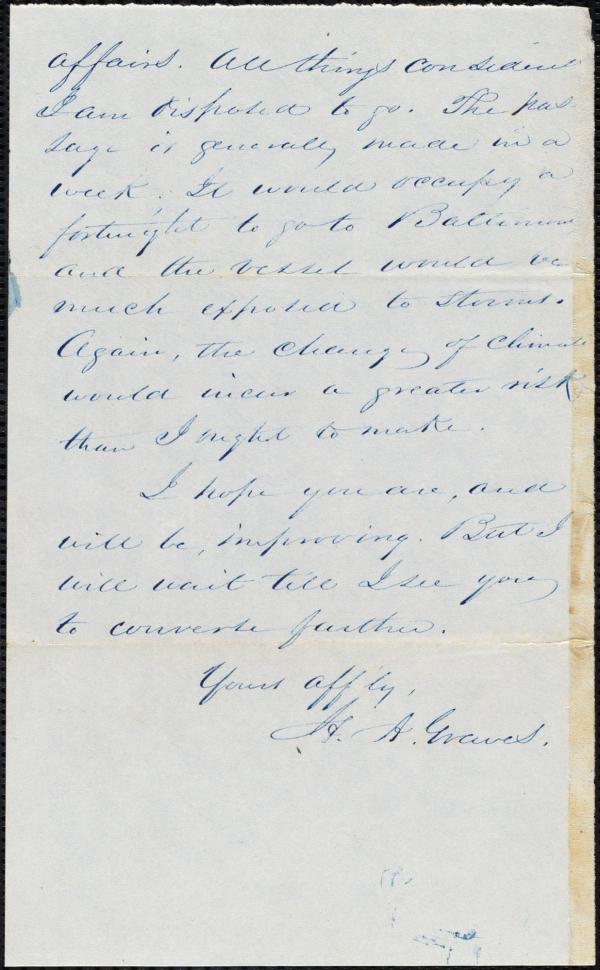 affairs. All things considered
I am disposed to go. The pas-
sage is generally made in a
week. It would occupy a
fortnight to go to Baltimore
and the vessel would be
much exposed to storms.
Again, the change of climate
would incur a greater risk
than I ought to make.
I hope you are, and
will be, improving. But I
will wait till I see you
to converse further.
Yours aff'ly,
H. A. Graves.